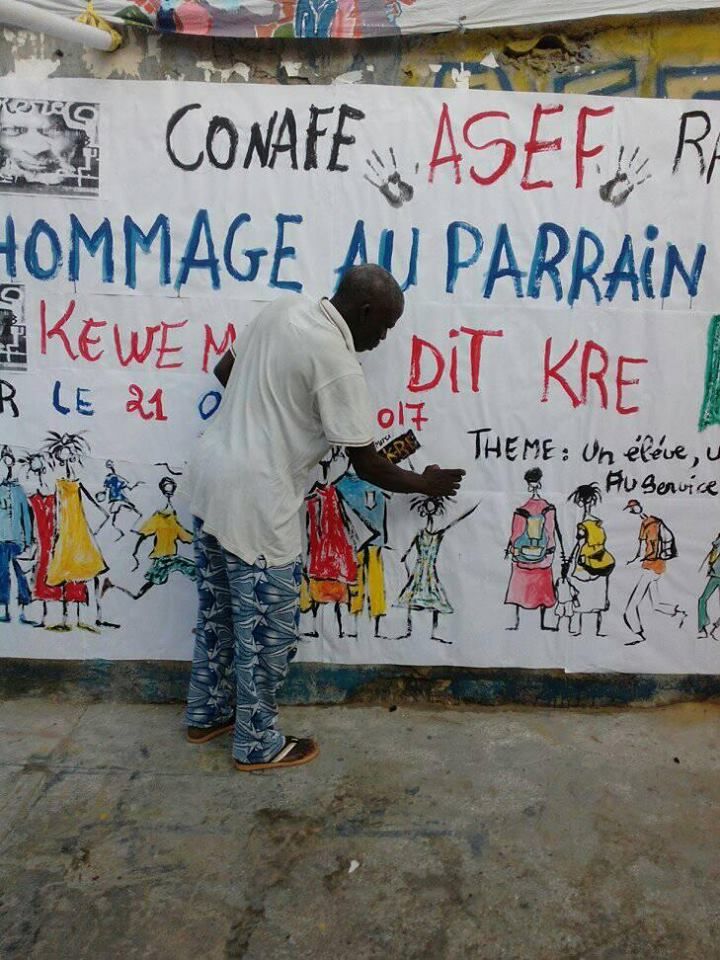 CONAFE ASEF
HOMMAGE AU PARRAiN
KEWE DiT KRE
LE 21 017
THEME: Un éléve,
Au Service